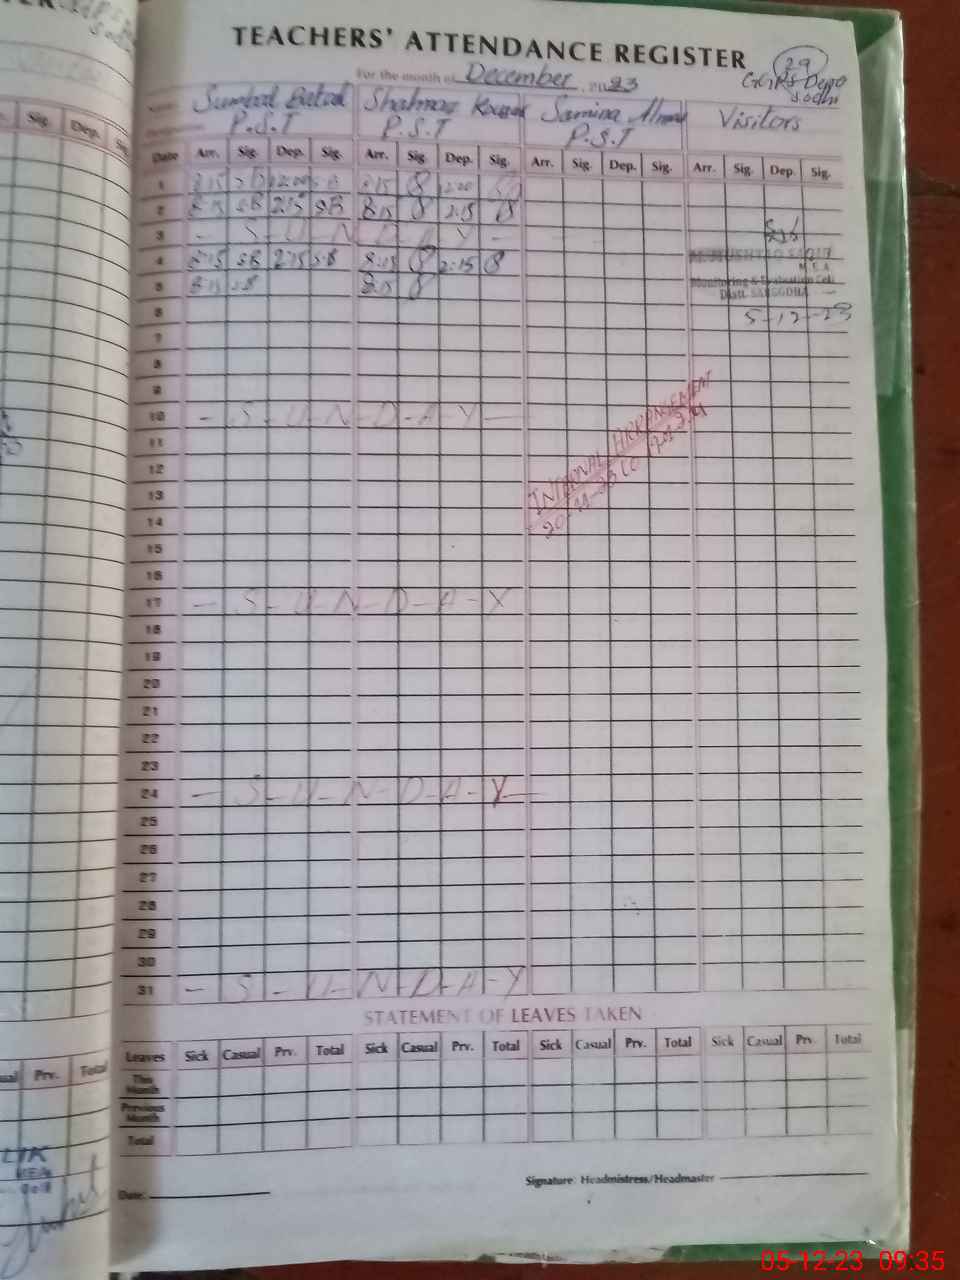 TEACHERS' ATTENDANCE REGISTER
For the month of December 2023
29
GGPS Depo
Sodhi
Name Sumbal Batool Shahnaz Kausar Samina Ahmad Visitors
P.S.T P.S.T P.S.T
Date Arr. Sig. Dep. Sig. Arr. Sig. Dep. Sig. Arr. Sig. Dep. Sig. Arr. Sig. Dep. Sig.
1 8:15 S.B 12:00 S.B 8:15 12:00
2 8:15 S.B 2:15 S.B 8:15 2:15
3 - S - U - N - D - A - Y -
4 8:15 S.B 2:15 S.B 8:15 2:15
5 8:15 S.B 8:15
M.E.A
Monitoring & Evaluation Cell
Distt. SARGODHA
5-12-23
6
7
8
9
10 - S - U - N - D - A - Y -
INTERNAL ARRANGEMENT
11
12
13
14
15
16
17 - S - U - N - D - A - Y
18
19
20
21
22
23
24 - S - U - N - D - A - Y -
25
26
27
28
29
30
31 - S - U - N - D - A - Y
STATEMENT OF LEAVES TAKEN
Leaves Sick Casual Prv. Total Sick Casual Prv. Total Sick Casual Prv. Total Sick Casual Prv. Total
This Month
Previous Month
Total
Signature: Headmistress/Headmaster
Date:
05-12-23 09:35